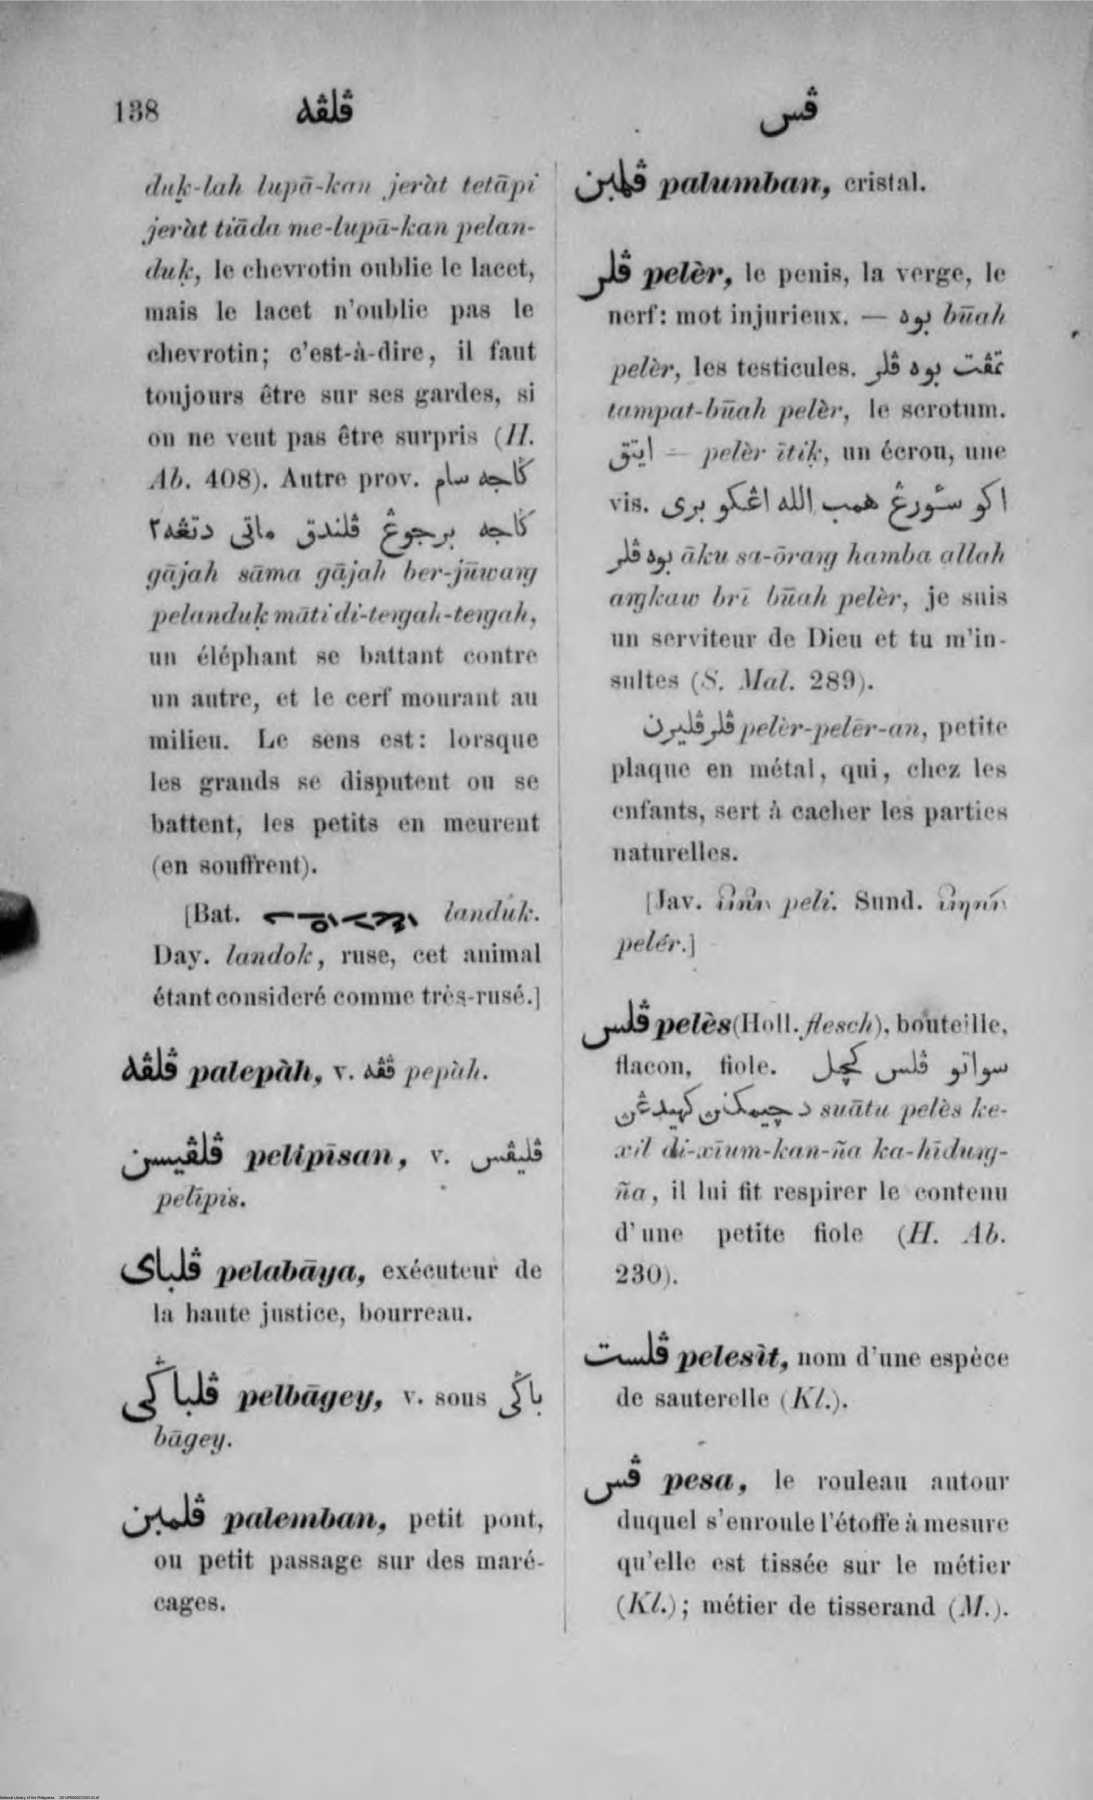 138 ڤلڤه ڤس
duḳ-lah lupā-kan jeràt tetāpi
jeràt tiāda me-lupā-kan pelan-
duḳ, le chevrotin oublie le lacet,
mais le lacet n'oublie pas le
chevrotin; c'est-à-dire, il faut
toujours être sur ses gardes, si
on ne veut pas être surpris (H.
Ab. 408). Autre prov. ݢاجه سام
ݢاجه برجوڠ ڤلندق ماتى دتڠه٢
gājah sāma gājah ber-jūwaŋg
pelanduḳ māti di-teŋgah-teŋgah,
un éléphant se battant contre
un autre, et le cerf mourant au
milieu. Le sens est: lorsque
les grands se disputent ou se
battent, les petits en meurent
(en souffrent).
[Bat. landuk.
Day. landok, ruse, cet animal
étant consideré comme très-rusé.]
ڤلڤه palepàh, v. ڤڤه pepàh.
ڤلڤيسن pelipīsan, v. ڤليڤس
pelīpis.
ڤلباى pelabāya, exécuteur de
la haute justice, bourreau.
ڤلباݢى pelbāgey, v. sous باݢى
bāgey.
ڤلمبن palemban, petit pont,
ou petit passage sur des maré-
cages.
ڤلمبن palumban, cristal.
ڤلر pelèr, le penis, la verge, le
nerf: mot injurieux. — بوه būah
pelèr, les testicules. تمڤت بوه ڤلر
tampat-būah pelèr, le scrotum.
ايتق — pelèr ītiḳ, un écrou, une
vis. اكو سٔورڠ همب الله اڠكو برى
بوه ڤلر āku sa-ōraŋg hamba allah
aŋgkaw brī būah pelèr, je suis
un serviteur de Dieu et tu m'in-
sultes (S. Mal. 289).
ڤلرڤليرن pelèr-pelēr-an, petite
plaque en métal, qui, chez les
enfants, sert à cacher les parties
naturelles.
[Jav. peli. Sund.
pelér.]
ڤلس pelès (Holl. flesch), bouteille,
flacon, fiole. سواتو ڤلس كچل
دچيمكنڽ كهيدڠڽ suātu pelès ke-
xil di-xīum-kan-ña ka-hīduŋg-
ña, il lui fit respirer le contenu
d'une petite fiole (H. Ab.
230).
ڤلست pelesìt, nom d'une espèce
de sauterelle (Kl.).
ڤس pesa, le rouleau autour
duquel s'enroule l'étoffe à mesure
qu'elle est tissée sur le métier
(Kl.); métier de tisserand (M.).